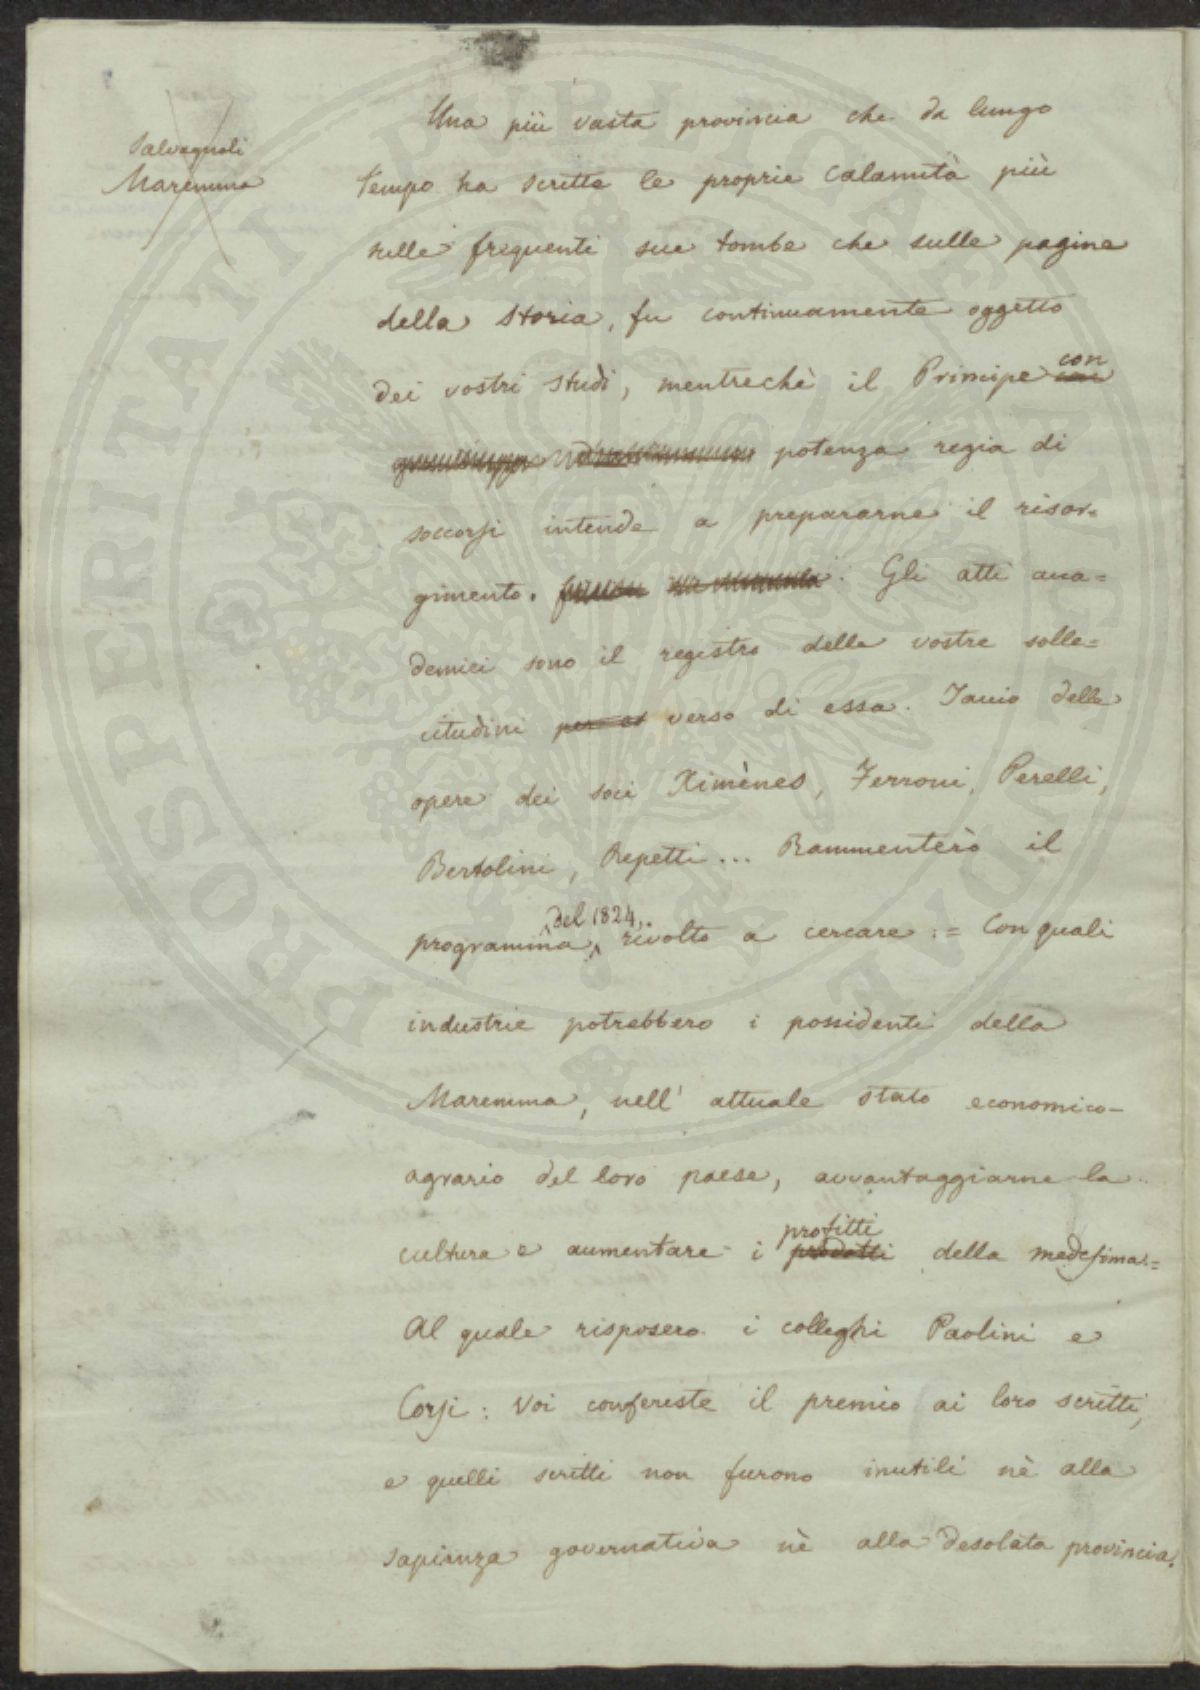 Salvagnoli
Maremma
Una più vasta provincia che da lungo
tempo ha scritte le proprie calamità più
nelle frequenti sue tombe che sulle pagine
della storia, fu continuamente oggetto
dei vostri studi, mentrechè il Principe con
potenza regia di
soccorsi intende a prepararne il risor=
gimento. Gli atti acca=
demici sono il registro delle vostre solle=
citudini verso di essa. Taccio delle
opere dei soci Ximènes, Ferroni, Perelli,
Bertolini, Repetti... Rammenterò il
programma del 1824, rivolto a cercare := Con quali
industrie potrebbero i possidenti della
Maremma, nell' attuale stato economico-
agrario del loro paese, avvantaggiarne la
cultura e aumentare i profitti prodotti della medesima.=
Al quale risposero i colleghi Paolini e
Corsi: Voi conferiste il premio ai loro scritti,
e quelli scritti non furono inutili nè alla
sapienza governativa nè alla desolata provincia.
PROSPERITATI PUBLICAE AUGENDAE